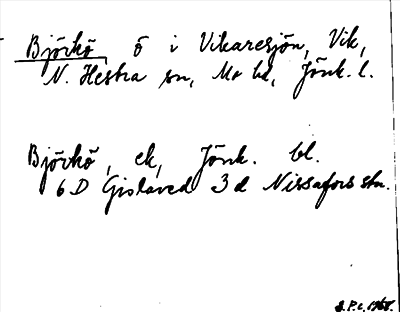 Björkö, ö i Vikaresjön, Vik,
N. Hestra sn, Mo hd, Jönk. l.
Björkö, ek, Jönk. bl.
6 D Gislaved 3 d Nissafors stn.